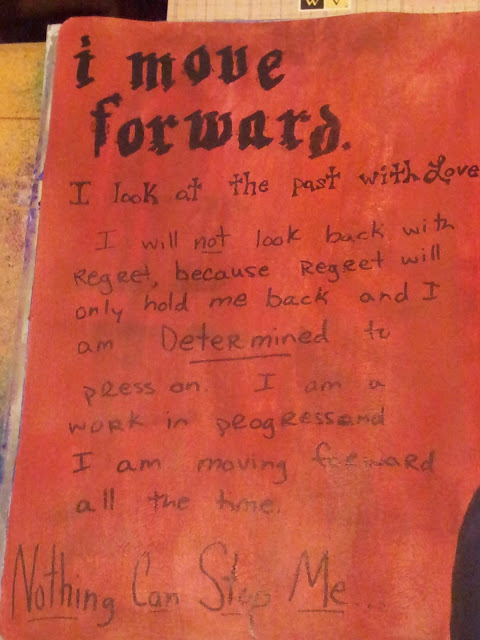 W V.
i move
forward.
I look at the past with Love
I will not look back with
Regret, because Regret will
only hold me back and I
am Determined to
press on. I am a
work in progress and
I am moving forward
all the time.
Nothing Can Stop Me...